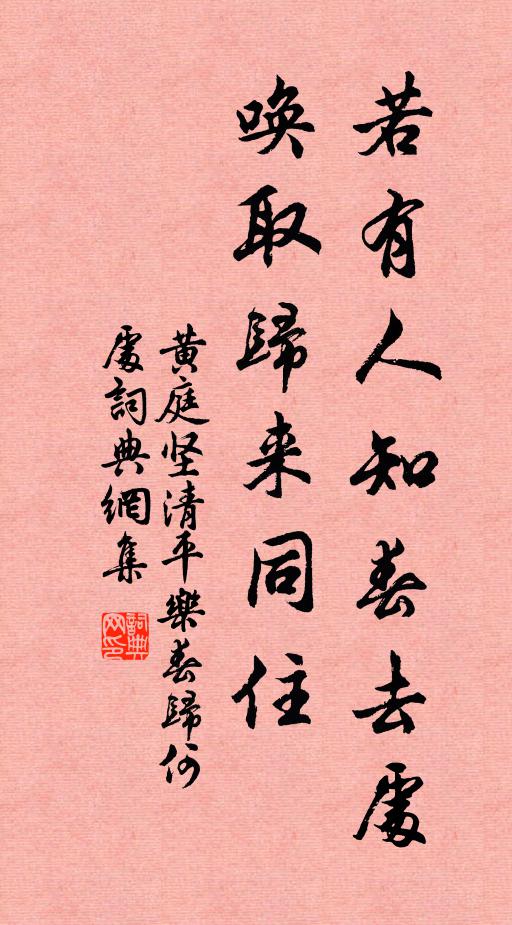 若有人知春去處
唤取歸来同住
黄庭坚清平樂春歸何
處詞典網集
詞典网印